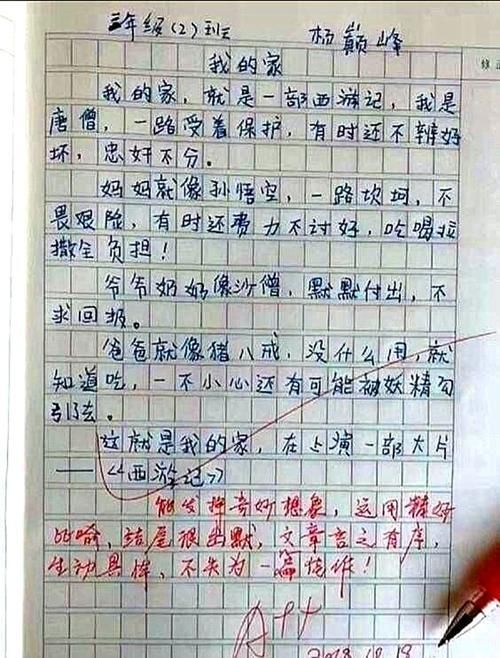 三年级(2)班 杨巅峰
我的家
我的家，就是一部西游记，我是
唐僧，一路受着保护，有时还不辨好
坏，忠奸不分。
妈妈就像孙悟空，一路坎坷，不
畏艰险，有时还费力不讨好，吃喝拉
撒全负担！
爷爷奶奶像沙僧，默默付出，不
求回报。
爸爸就像猪八戒，没什么用，就
知道吃，一不小心还有可能被妖精勾
引去。
这就是我的家，在上演一部大片
——《西游记》
能发挥奇妙想象，运用精妙
比喻，结尾很幽默，文章言之有序，
生动具体，不失为一篇佳作！
A++
2018.10.19